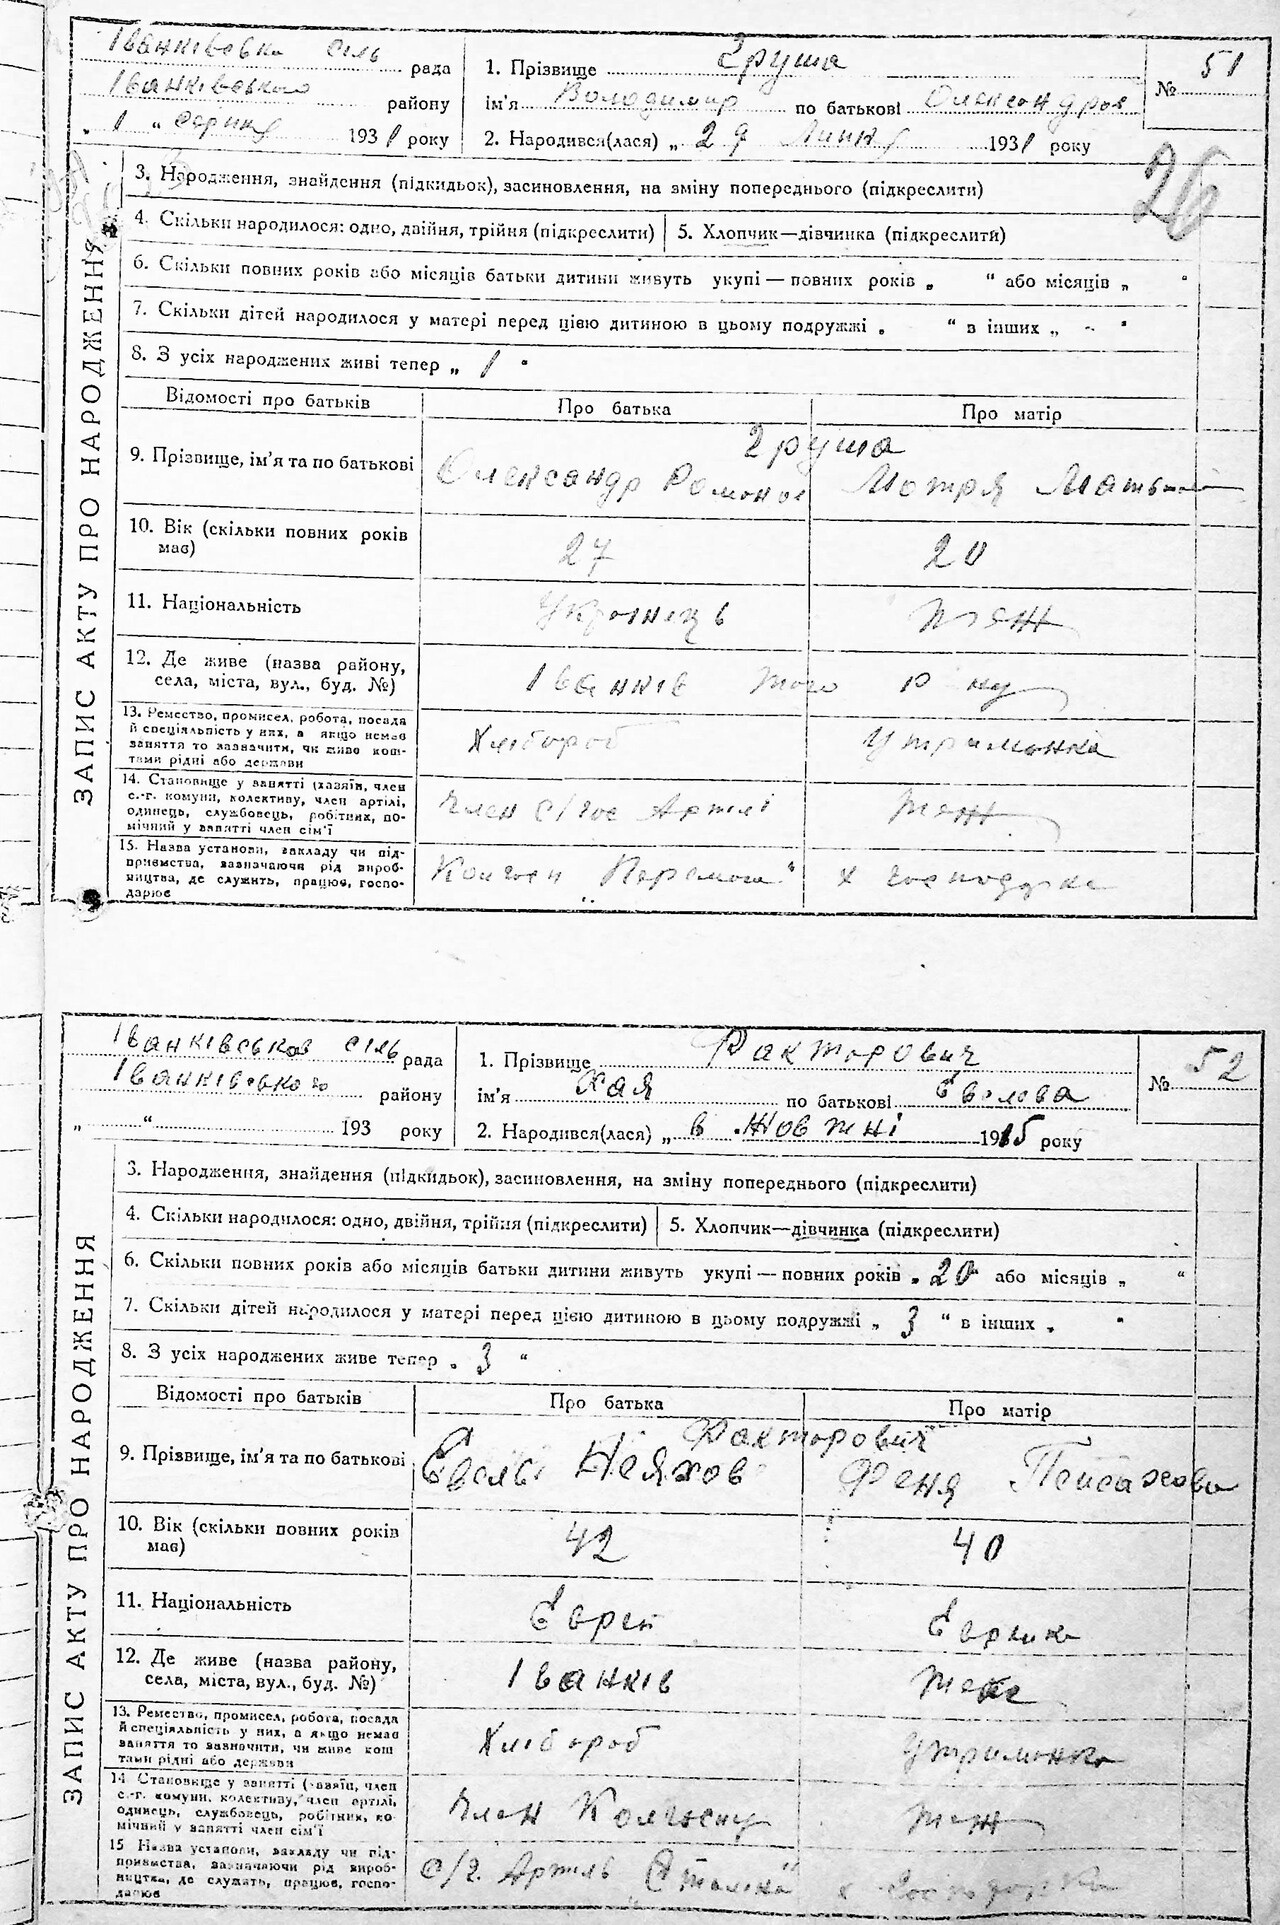 Іванківська сіль рада
Іванківського району
„ 1 “ серпня 1931 року
1. Прізвище Груша
ім'я Володимир по батькові Олександров
2. Народився(лася) „ 29 Липня 1931 року
№ 51
26
ЗАПИС АКТУ ПРО НАРОДЖЕННЯ
3. Народження, знайдення (підкидьок), засиновлення, на зміну попереднього (підкреслити)
4. Скільки народилося: одно, двійня, трійня (підкреслити) 5. Хлопчик—дівчинка (підкреслити)
6. Скільки повних років або місяців батьки дитини живуть укупі — повних років „ “ або місяців „ “
7. Скільки дітей народилося у матері перед цією дитиною в цьому подружжі „ “ в інших „ - “
8. З усіх народжених живі тепер „ 1 “
Відомості про батьків Про батька Про матір
9. Прізвище, ім'я та по батькові Груша
Олександр Романов Мотря
10. Вік (скільки повних років має) 27 20
11. Національність Українець теж
12. Де живе (назва району, Іванків того р ну
села, міста, вул., буд. №)
13. Ремество, промисел, робота, посада Хлібороб Утриманка
й спеціяльність у них, а якщо немає
заняття то зазначити, чи живе кош-
тами рідні або держави
14. Становище у занятті (хазяїн, член Член с/гос Артілі теж
с.-г. комуни, колективу, член артілі,
одинець, службовець, робітник, по-
мічний у занятті член сім'ї
15. Назва установи, закладу чи під- Колгосп „Перемога“ х господарка
приємства, зазначаючи рід вироб-
ництва, де служить, працює, госпо-
дарює
Іванківськоѣ сіль рада
Іванківського району
„ “ 193 року
1. Прізвище Факторович
ім'я Хая по батькові
2. Народився(лася) „ в Жовтні 1915 року
№ 52
ЗАПИС АКТУ ПРО НАРОДЖЕННЯ
3. Народження, знайдення (підкидьок), засиновлення, на зміну попереднього (підкреслити)
4. Скільки народилося: одно, двійня, трійня (підкреслити) 5. Хлопчик—дівчинка (підкреслити)
6. Скільки повних років або місяців батьки дитини живуть укупі — повних років „ 20 або місяців „ “
7. Скільки дітей народилося у матері перед цією дитиною в цьому подружжі „ 3 “ в інших „ “
8. З усіх народжених живе тепер „ 3 “
Відомості про батьків Про батька Про матір
9. Прізвище, ім'я та по батькові Факторович
Феня Пейсахова
10. Вік (скільки повних років має) 42 40
11. Національність Єврей Єврейка
12. Де живе (назва району, Іванків теж
села, міста, вул., буд. №)
13. Ремество, промисел, робота, посада Хлібороб утриманка
й спеціяльність у них, а якщо немає
заняття то зазначити, чи живе кош
тами рідні або держави
14 Становище у занятті (хазяїн, член Член Колгоспу теж
с.-г. комуни, колективу, член артілі,
одинець, службовець, робітник, по-
мічний у занятті член сім'ї
15 Назва установи, закладу чи під- с/г. Артіль „Сталіна“ х господарка
приємства, зазначаючи рід вироб-
ництва, де служить, працює, госпо-
дарює